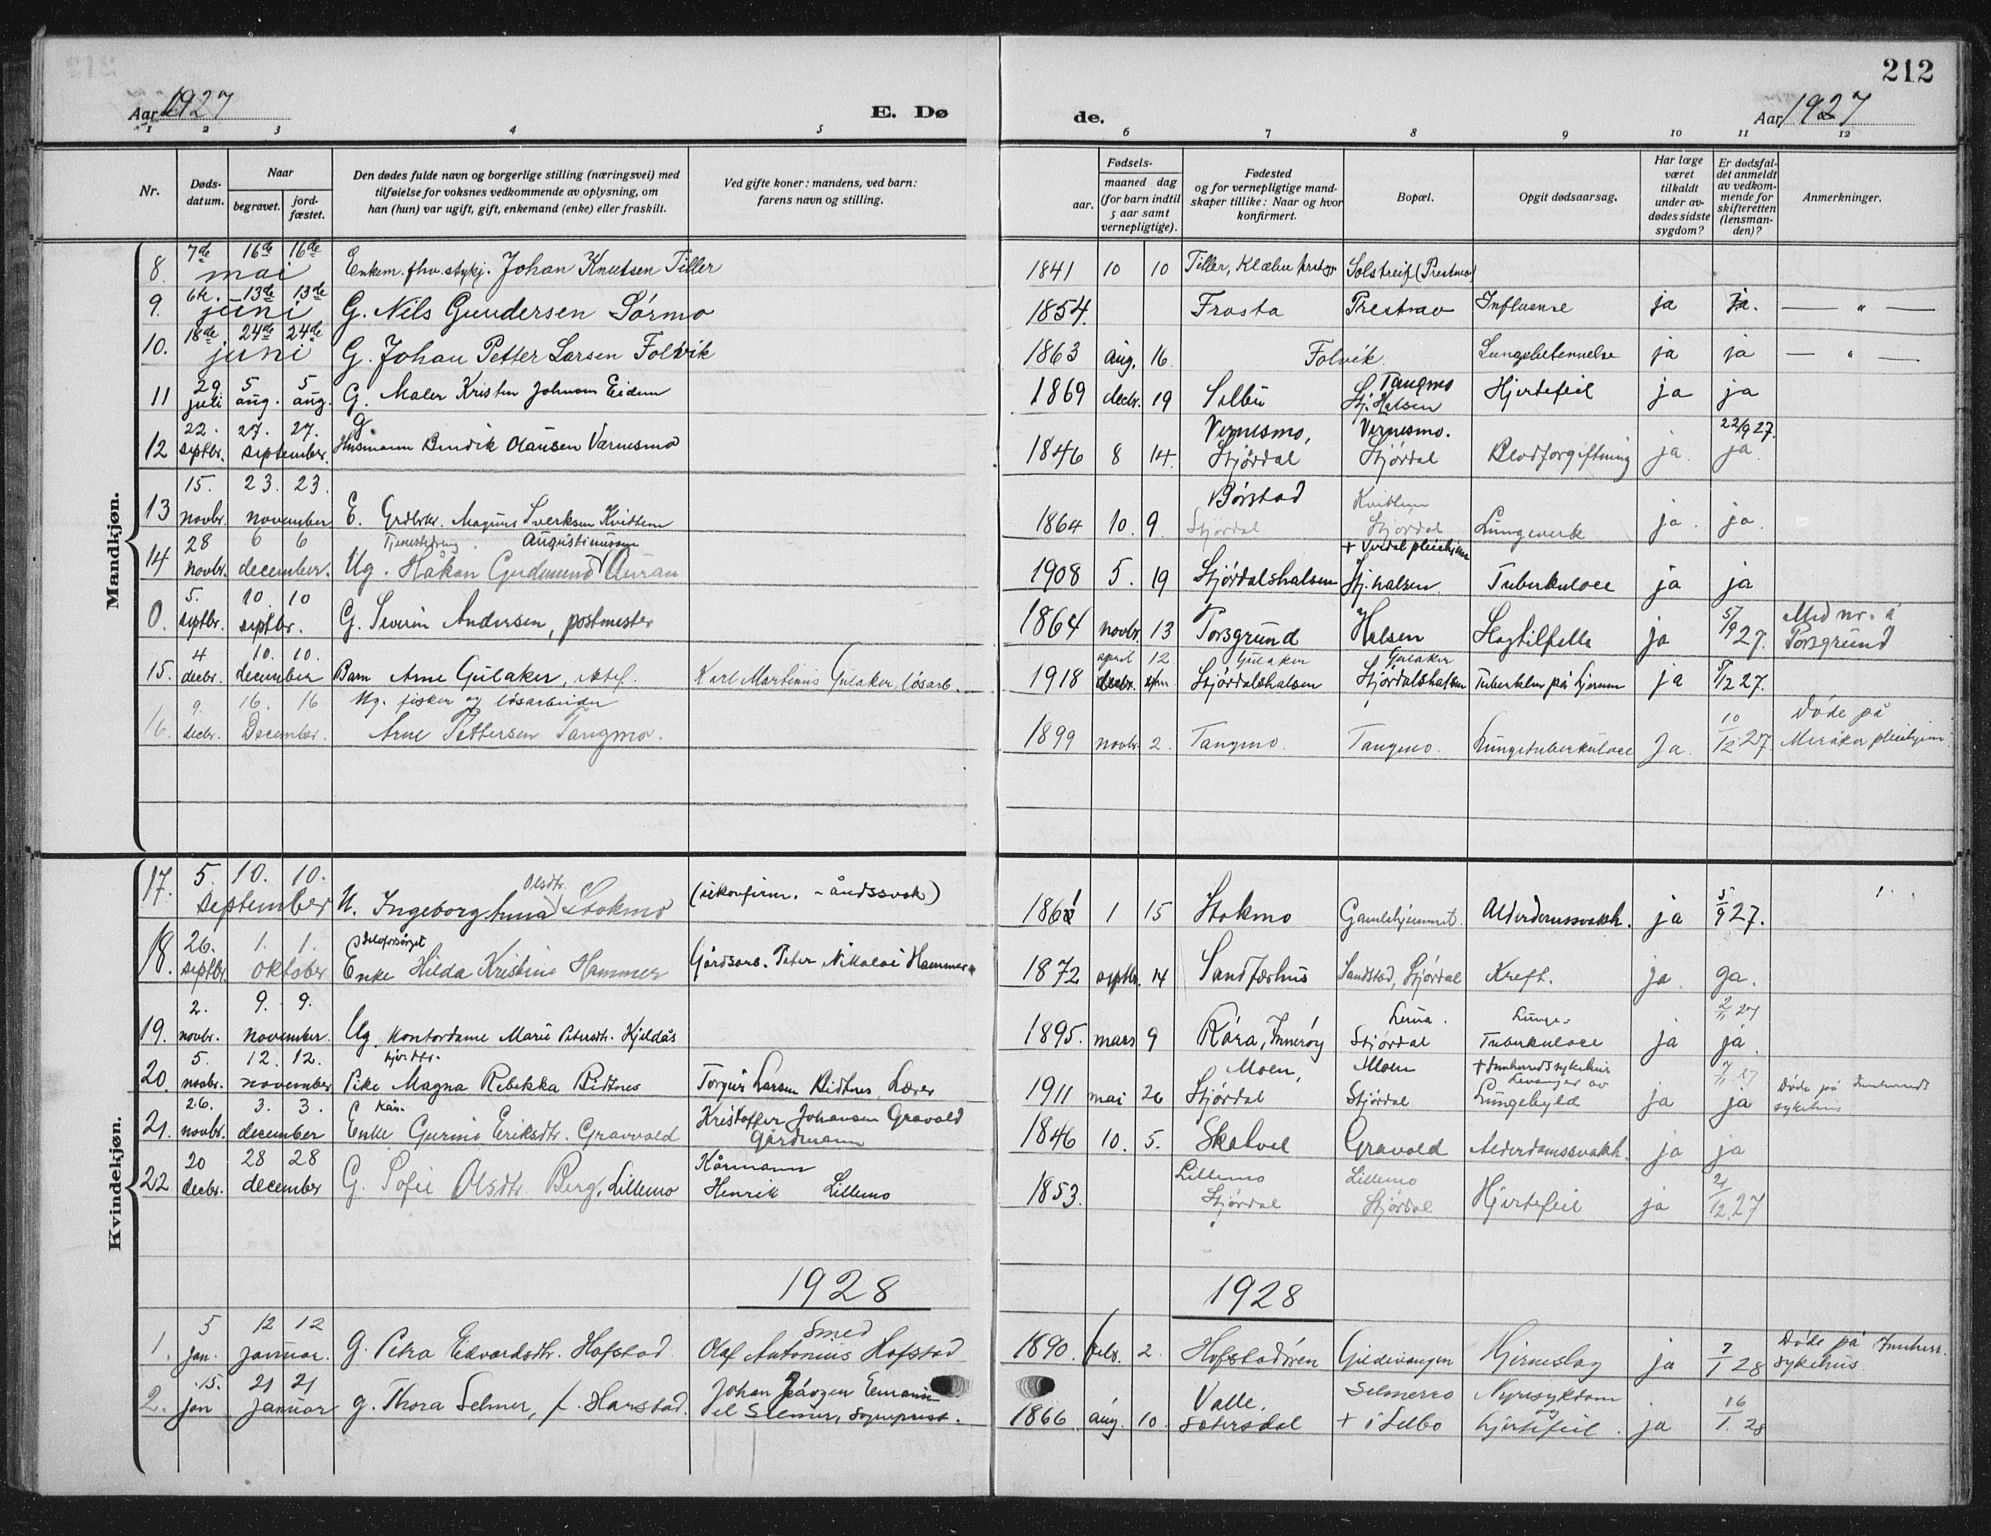 212
Aar 1927
E. Dø
de.
Aar 1927
1 2 3 4 5 6 7 8 9 10 11 12
Nr.
Døds-
datum.
Naar
begravet.
jord-
fæstet.
Den dødes fulde navn og borgerlige stilling (næringsvei) med
tilføielse for voksnes vedkommende av oplysning, om
han (hun) var ugift, gift, enkemand (enke) eller fraskilt.
Ved gifte koner: mandens, ved barn:
farens navn og stilling.
Fødsels-
aar.
maaned dag
(for barn indtil
5 aar samt
vernepligtige).
Fødested
og for vernepligtige mand-
skaper tillike: Naar og hvor
konfirmert.
Bopæl.
Opgit dødsaarsag.
Har læge
været
tilkaldt
under av-
dødes sidste
sygdom?
Er dødsfal-
det anmeldt
av vedkom-
mende for
skifteretten
(lensman-
den)?
Anmerkninger.
Mandkjøn.
8. 7de 16de 16de mai Enkem. fhv. stykj. Johan Knutsen Tiller 1841 10 10 Tiller, Klæbu Solstreif (Prestmo)
9. 6te 13de 13de juni G. Nils Gundersen Sørmo 1854. Frosta Prestmo Influense ja ja. — " —
10. 18de 24de 24de juni G. Johan Petter Larsen Folvik 1863 aug. 16 Folvik Lungebetennelse ja ja — " —
11 29 juli 5 aug. 5 aug. G. Maler Kristen Johnsen Eidum 1869 decbr. 19 Selbu Tangmo Stj. Halsen Hjertefeil ja ja
12 22. septbr. 27. 27. september. G. Husmann Bendik Olausen Værnesmo 1846 8 14. Vernesmo, Stjørdal Vernesmo. Stjørdal Blodforgiftning ja. 22/9 27. ja.
13 15. novbr. 23. 23. november E. Grdbrkr. Magnus Sverksen Kvithem 1864 10. 9. Børstad Stjørdal Kvithem Stjørdal Lungeverk ja. ja.
14 28 novbr. 6 6 december. Ug. Håkon Gudmund Augustinussen Auran 1908 5. 19 Stjørdalshalsen + Verdal pleiehjem Stj.halsen. Tuberkulose ja ja
0. 5. septbr. 10. 10 septbr. G. Severin Andersen, postmester 1864 novbr. 13 Porsgrund Halsen Slagtilfelle ja 5/9 27. Med nr. i Porsgrund
15. 4 decbr. 10. 10. december Barn Arne Gulaker, Karl Martinus Gulaker, løsarb. 1918 april 12 Gulaker Stjørdalshalsen Gulaker Stjørdalshalsen Tuberklen på hjernen ja 5/12 27.
16. 9. decbr. 16. 16 December. Ug. fisker og løsarbeider Arne Pettersen Tangmo. 1899 novbr. 2. Tangmo. Tangmo. Lungetuberkulose Ja. 10/12 27 Døde på Meråker pleiehjem
Kvindekjøn.
17. 5. 10. 10. september U. Ingeborg Anna Olsdtr. Stokmo (ukonfirm. - åndssvak) 1861 1 15 Stokmo Gamlehjemmet. Alderdomssvakh. ja 5/9 27.
18. 26. septbr. 1. 1. oktober selvforsørget Enke Hilda Kristine Hammer Gårdsarb. Peter Nikolai Hammer 1872 septbr. 14 Sandfærhus Sandstad, Stjørdal Kreft. ja. ja.
19. 2. novbr. 9. 9. november. Ug. kontordame Marie Petersdtr. Kjeldås 1895. mars 9 Røra, Inderøy Leira. Stjørdal Lunge- Tuberkulose ja 2/11 27 ja.
20. 5. novbr. 12. 12. november Pike Magna Rebekka Bidtnes Torgeir Larsen Bidtnes, Lærer 1911 mai 26 Moen, Stjørdal Moen Stjørdal + Innherreds sykehus Levanger av Lungebyld ja 7/11 27 ja Døde på Innherreds sykehus
21. 26. novbr. 3. 3. december Kår. Enke Gurine Eriksdtr. Gravvold Kristoffer Johansen Gravold Gårdmann 1846 10. 5. Skatval Gravold Alderdomssvakh. ja ja
22 20 decbr. 28 28 december G. Sofie Olsdtr. Berg, Lillemo Kårmann Henrik Lillemo 1853. Lillemo Stjørdal Lillemo Stjørdal Hjertefeil ja 21/12 27
1928
1928
1. 5 jan. 12 12 januar. G. Petra Edvardsdtr. Hofstad. Smed Olaf Antonius Hofstad 1890. febr. 2. Hofstadøren Gildevangen Hjerneslag ja 7/1 28 Døde på Innherr. sykehus.
2. 15. jan 21 21 januar G. Thora Selmer, f. Harstad. Johan Jørgen Selmer, Sogneprest. 1866 aug. 10. Valle. Setersdal Selmermo + i Selbo Nyresykdom og hjertefeil. ja 16/1. 28